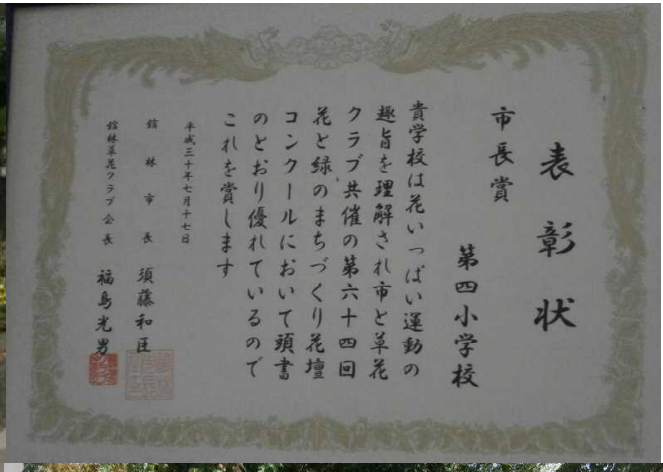 表彰状
市長賞
第四小学校
貴学校は花いっぱい運動の
趣旨を理解され市と草花
クラブ共催の第六十四回
花と緑のまちづくり花壇
コンクールにおいて頭書
のとおり優れているので
これを賞します
平成三十年七月十七日
館林市長 須藤和臣
館林草花クラブ会長 福島光男